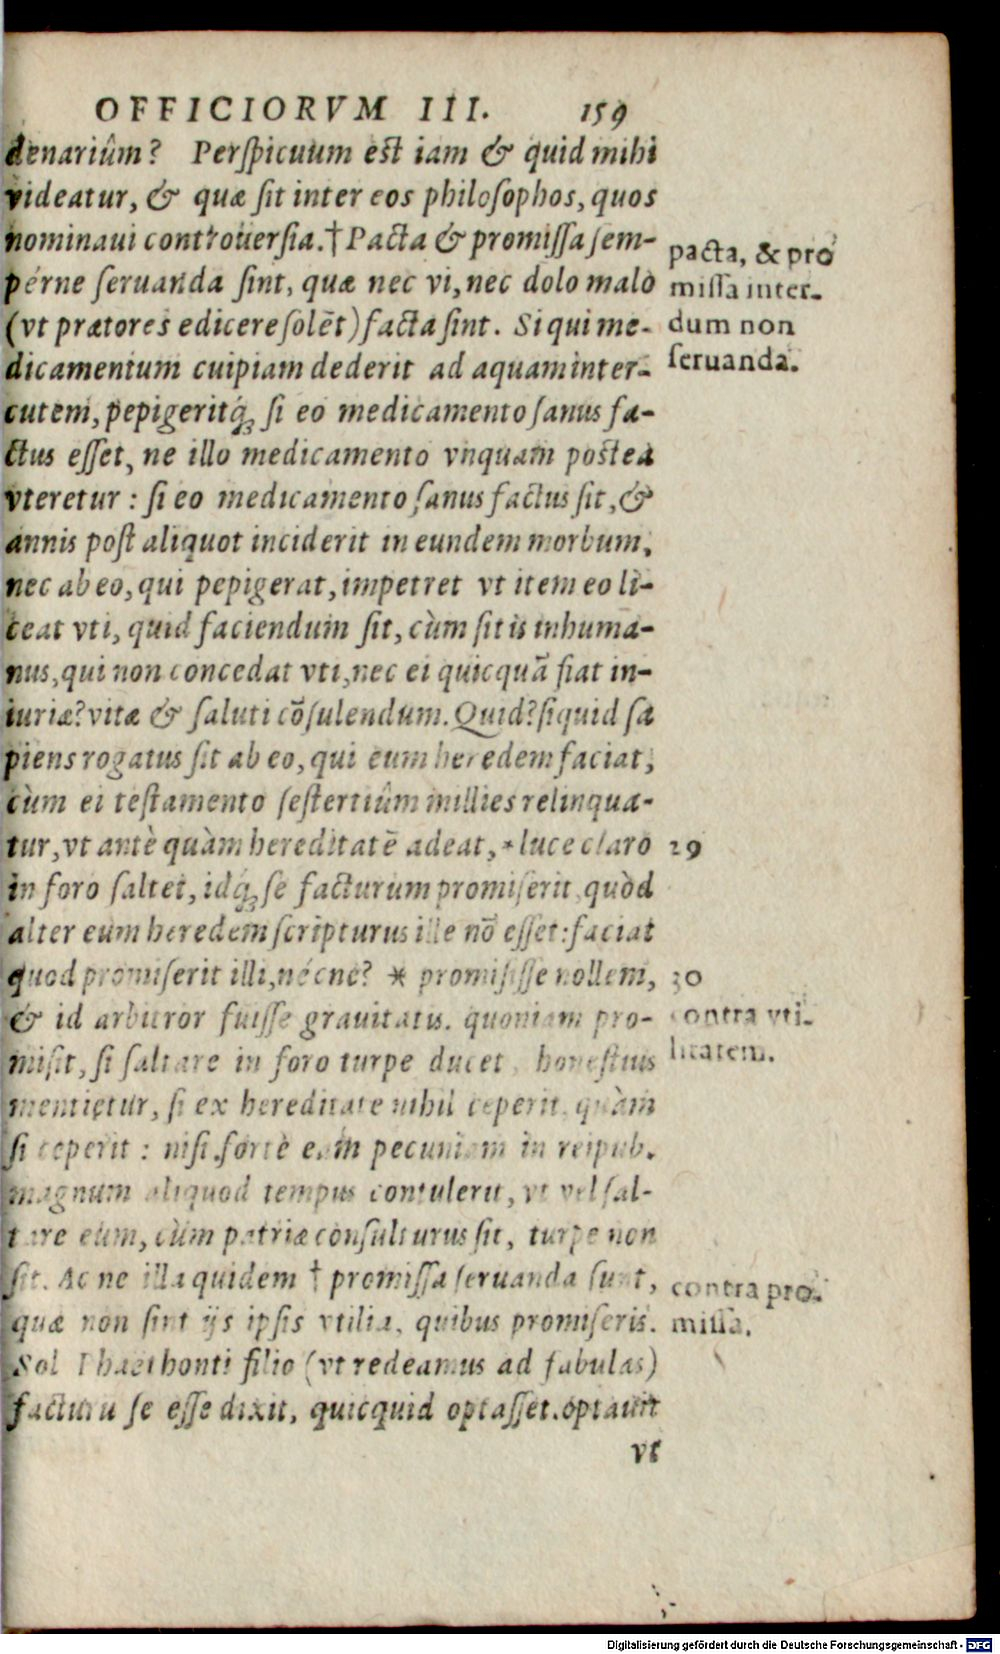 OFFICIORVM III. 159
denariûm? Perspicuum est iam & quid mihi
videatur, & quæ sit inter eos philosophos, quos
nominaui controuersia. † Pacta & promissa sem-
pérne seruanda sint, quæ nec vi, nec dolo malo
(vt prætores edicere solẽt) facta sint. Si qui me-
dicamentum cuipiam dederit ad aquam inter-
cutem, pepigeritq́ꝫ si eo medicamento sanus fa-
ctus esset, ne illo medicamento vnquam postea
vteretur: si eo medicamento sanus factus sit, &
annis post aliquot inciderit in eundem morbum,
nec ab eo, qui pepigerat, impetret vt item eo li-
ceat vti, quid faciendum sit, cùm sit is inhuma-
nus, qui non concedat vti, nec ei quicquã fiat in-
iuriæ? vitæ & saluti cõsulendum. Quid? si quid sa
piens rogatus sit ab eo, qui eum heredem faciat,
cùm ei testamento sestertiûm millies relinqua-
tur, vt antè quàm hereditatẽ adeat, * luce claro
in foro saltet, idq́ꝫ se facturum promiserit, quòd
alter eum heredem scripturus ille nõ esset: faciat
quod promiserit illi, nécne? * promisisse nollem,
& id arbitror fuisse grauitatis. quoniam pro-
misit, si saltare in foro turpe ducet, honestius
mentietur, si ex hereditate nihil ceperit, quàm
si ceperit: nisi fortè eam pecuniam in reipub.
magnum aliquod tempus contulerit, vt vel sal-
tare eum, cùm patriæ consulturus sit, turpe non
sit. Ac ne illa quidem † promissa seruanda sunt,
quæ non sint ijs ipsis vtilia, quibus promiseris.
Sol Phaethonti filio (vt redeamus ad fabulas)
facturũ se esse dixit, quicquid optasset. optauit
vt
pacta, & pro
missa inter-
dum non
seruanda.
29
30
contra vti-
litatem.
contra pro-
missa.
Digitalisierung gefördert durch die Deutsche Forschungsgemeinschaft - DFG